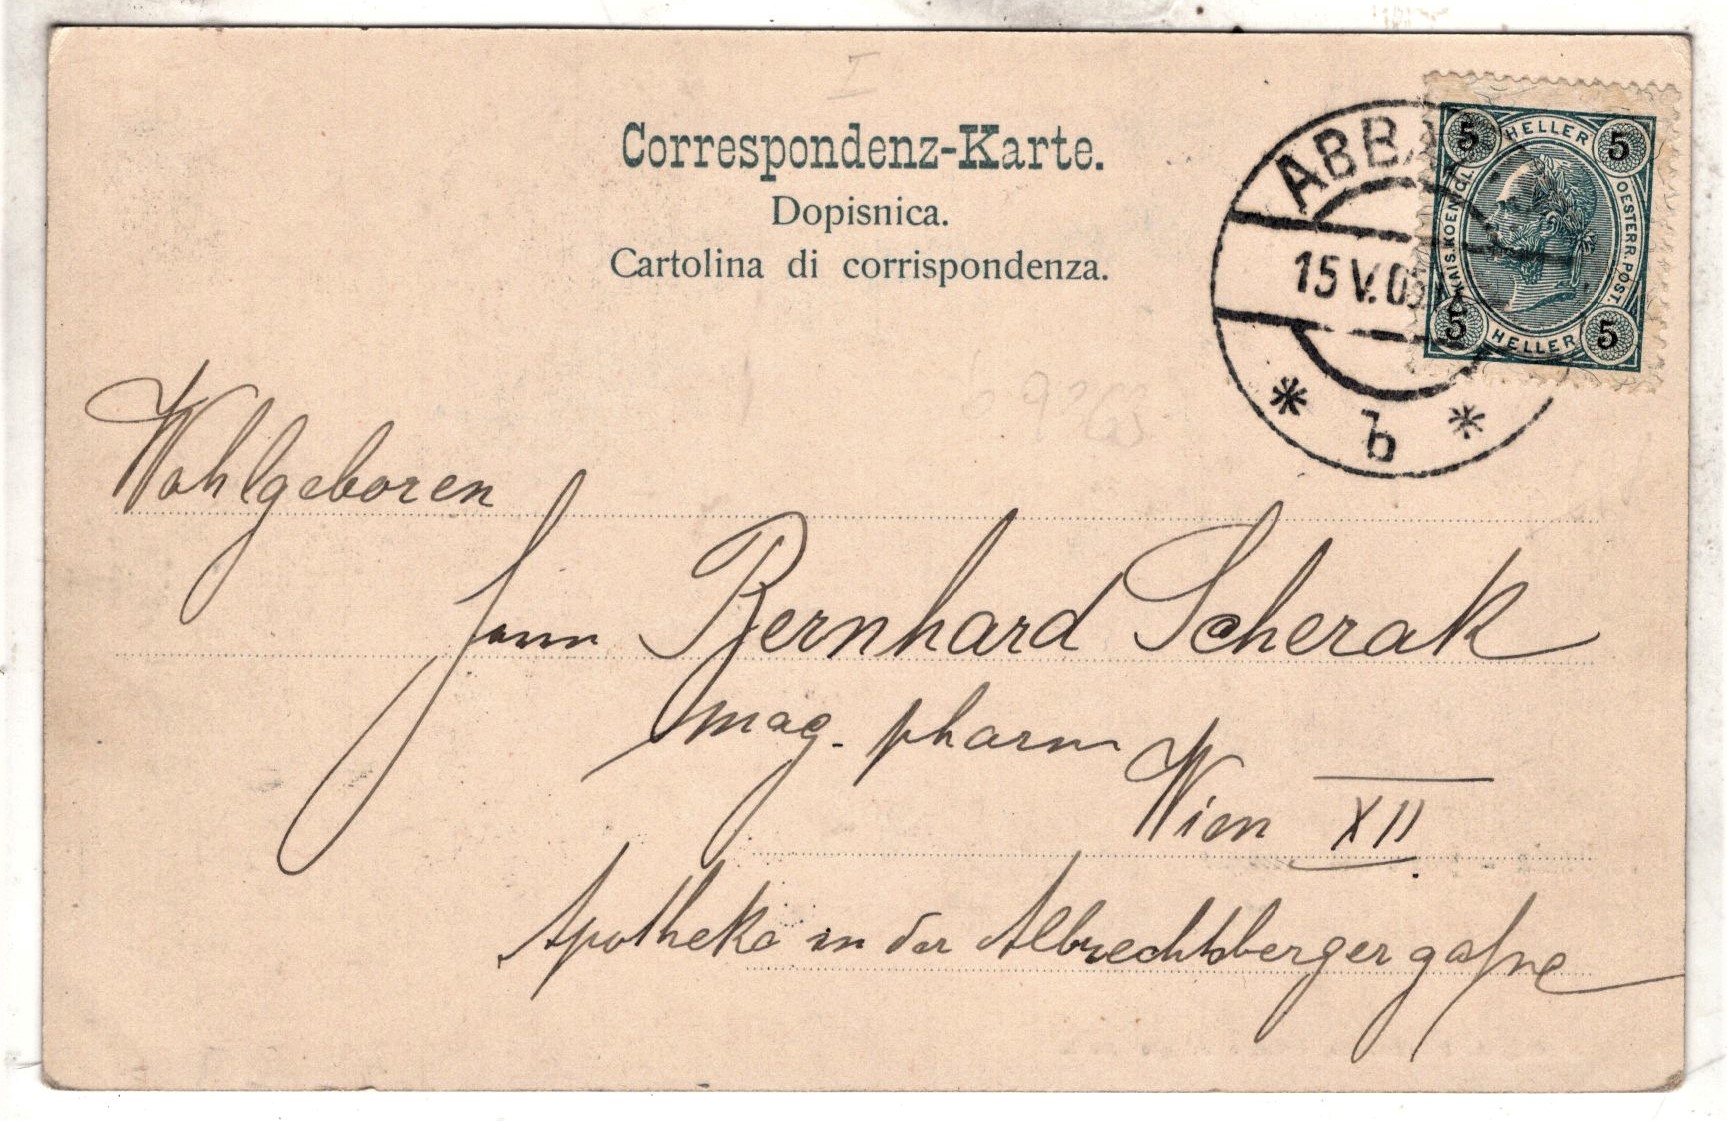 Correspondenz-Karte.
Dopisnica.
Cartolina di corrispondenza.
ABBA
15 V. 03
* b *
5 HELLER 5
KAIS. KOENIGL.
OESTERR. POST.
5 HELLER 5
Wohlgeboren
Herrn Bernhard Scherak
mag. pharm
Wien XII
Apotheke in der Albrechtsbergergasse